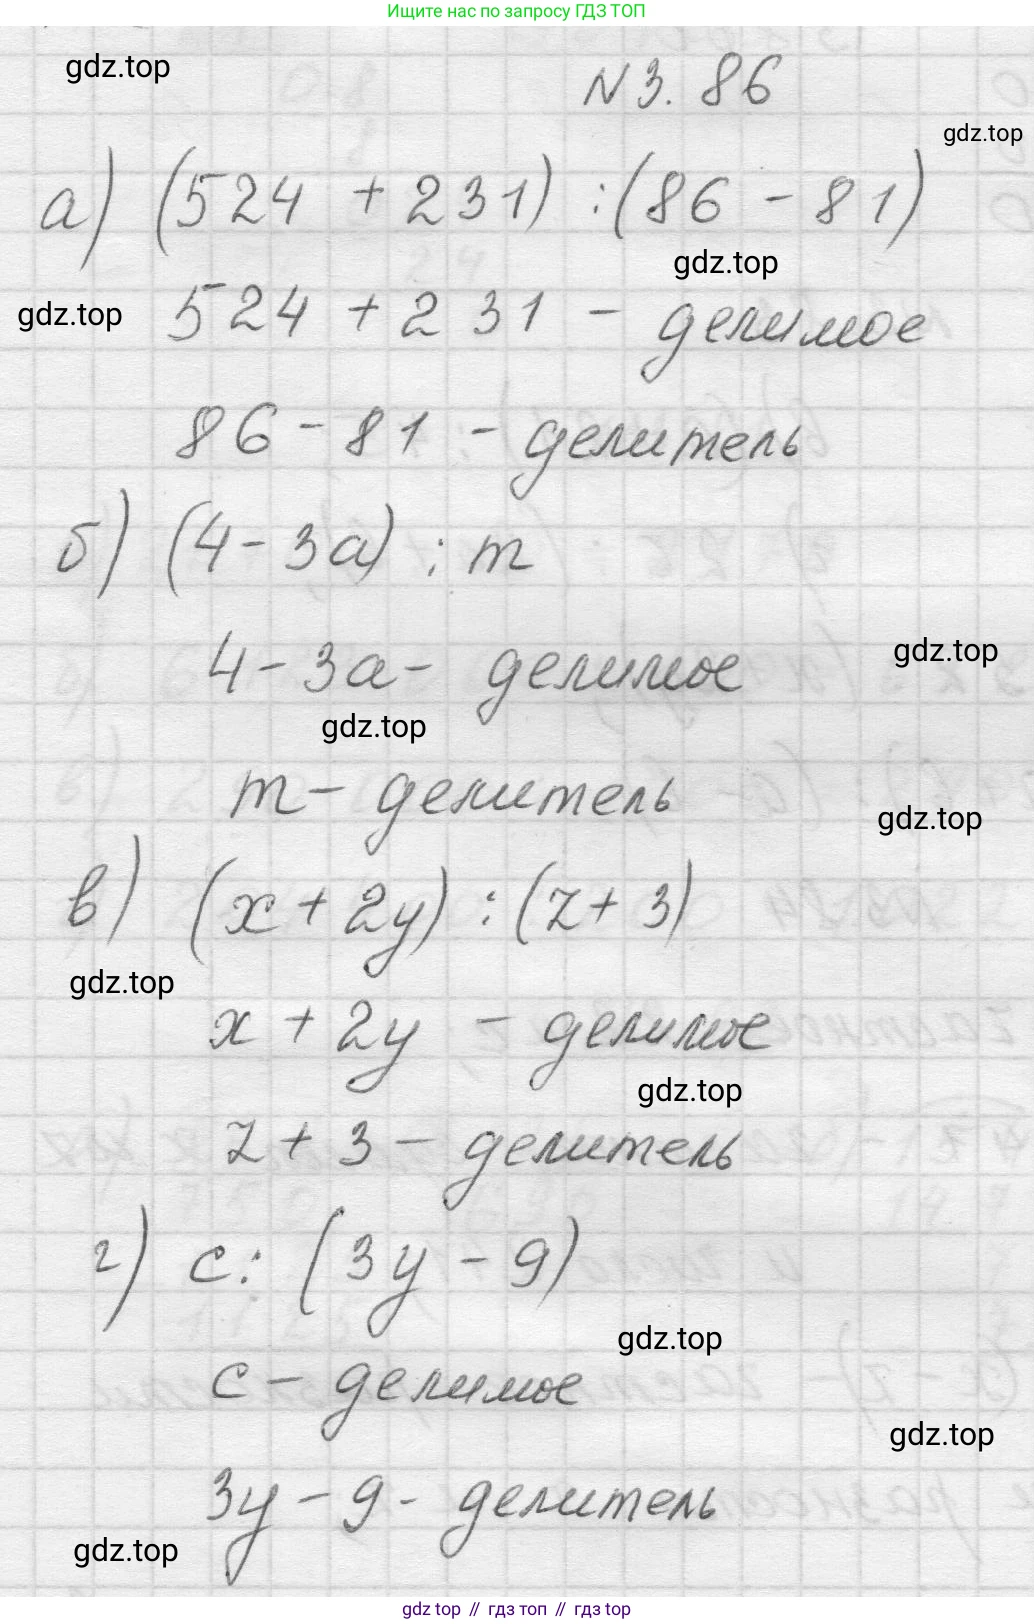 Ищите нас по запросу ГДЗ ТОП
gdz.top
N 3. 86
gdz.top
а) (524 + 231) : (86 - 81)
gdz.top
gdz.top
524 + 231 - делимое
86 - 81 - делитель
б) (4 - 3а) : m
gdz.top
4 - 3а - делимое
gdz.top
m - делитель
gdz.top
в) (x + 2y) : (z + 3)
gdz.top
x + 2y - делимое
gdz.top
z + 3 - делитель
г) c : (3y - 9)
gdz.top
c - делимое
gdz.top
3y - 9 - делитель
gdz.top
gdz top // гдз топ // гдз top